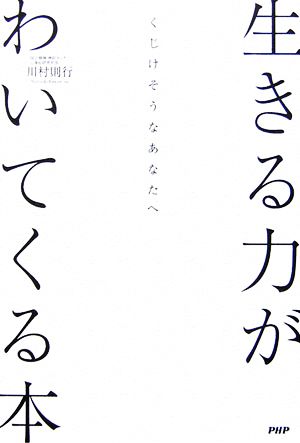 生きる力が
くじけそうなあなたへ
わいてくる本
川村則行
PHP